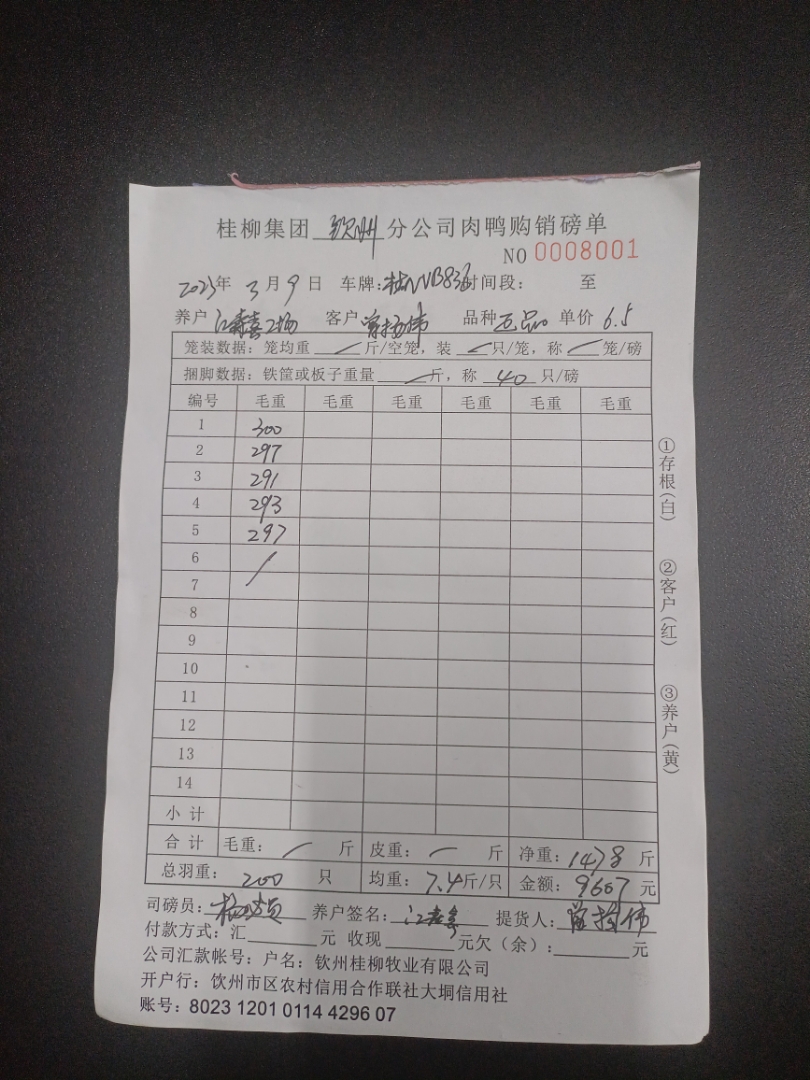 桂柳集团 钦州 分公司肉鸭购销磅单
NO 0008001
2023年 3月9日 车牌: 时间段: 至
养户 客户 曾扬伟 品种 单价 6.5
笼装数据: 笼均重 / 斤/空笼, 装 / 只/笼, 称 / 笼/磅
捆脚数据: 铁筐或板子重量 / 斤, 称 40 只/磅
编号 毛重 毛重 毛重 毛重 毛重 毛重
1 300
2 297
3 291
4 293
5 297
6 /
7
8
9
10
11
12
13
14
小计
合计 毛重: / 斤 皮重: / 斤 净重: 1478 斤
总羽重: 200 只 均重: 7.4斤/只 金额: 9607元
司磅员: 养户签名: 提货人: 曾扬伟
付款方式: 汇 元 收现 元欠(余): 元
公司汇款帐号: 户名: 钦州桂柳牧业有限公司
开户行: 饮州市区农村信用合作联社大垌信用社
账号: 8023 1201 0114 4296 07
①存根(白)
②客户(红)
③养户(黄)